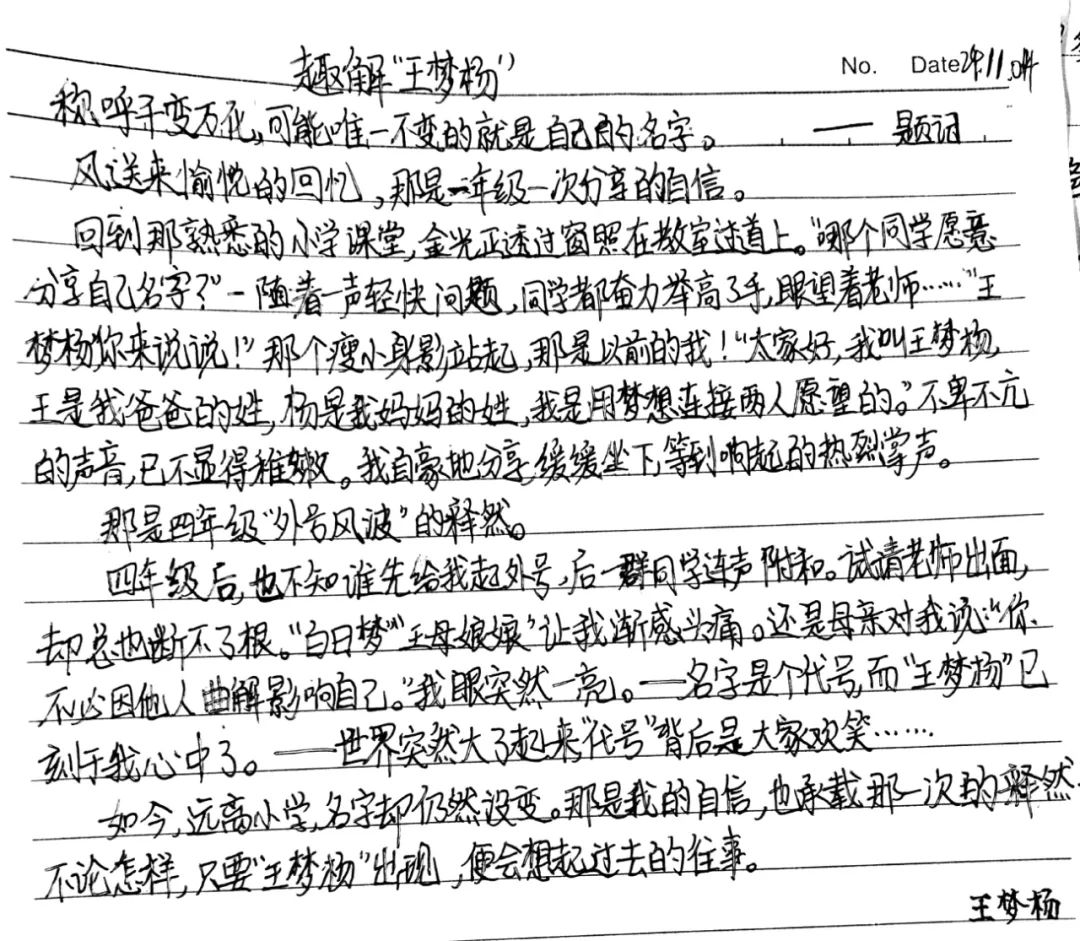 趣解“王梦杨”
No. Date24.11.04
称呼千变万化,可能唯一不变的就是自己的名字。 —— 题记
风送来愉悦的回忆,那是一年级一次分享的自信。
回到那熟悉的小学课堂,金光正透过窗照在教室过道上。“哪个同学愿意
分享自己名字?”一随着一声轻快问题,同学都奋力举高了手,眼望着老师……“王
梦杨你来说说!”那个瘦小身影站起,那是以前的我!“大家好,我叫王梦杨,
王是我爸爸的姓,杨是我妈妈的姓,我是用梦想连接两人愿望的。”不卑不亢
的声音,已不显得稚嫩。我自豪地分享,缓缓坐下,等到响起的热烈掌声。
那是四年级“外号风波”的释然。
四年级后,也不知谁先给我起外号,后一群同学连声附和。试请老师出面,
却总也断不了根。“白日梦”“王母娘娘”让我渐感头痛。还是母亲对我说:“你
不必因他人曲解影响自己。”我眼突然一亮。——名字是个代号,而“王梦杨”已
刻于我心中了。——世界突然大了起来,“代号”背后是大家欢笑……
如今,远离小学,名字却仍然没变。那是我的自信,也承载那一次的释然.
不论怎样,只要“王梦杨”出现,便会想起过去的往事。
王梦杨